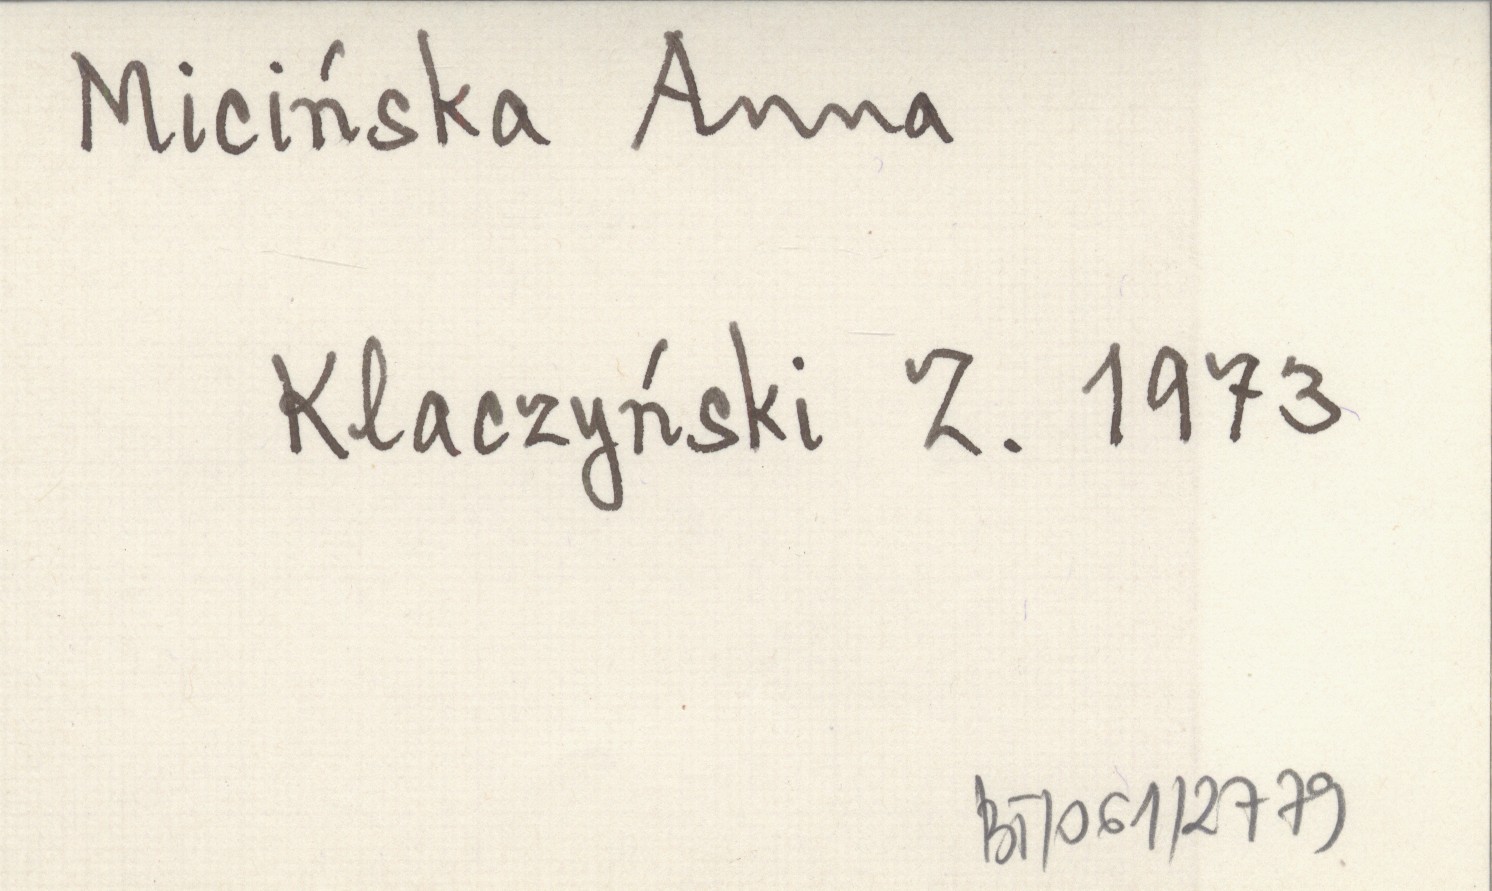 Micińska Anna
Klaczyński Z. 1973
BT/061/2779